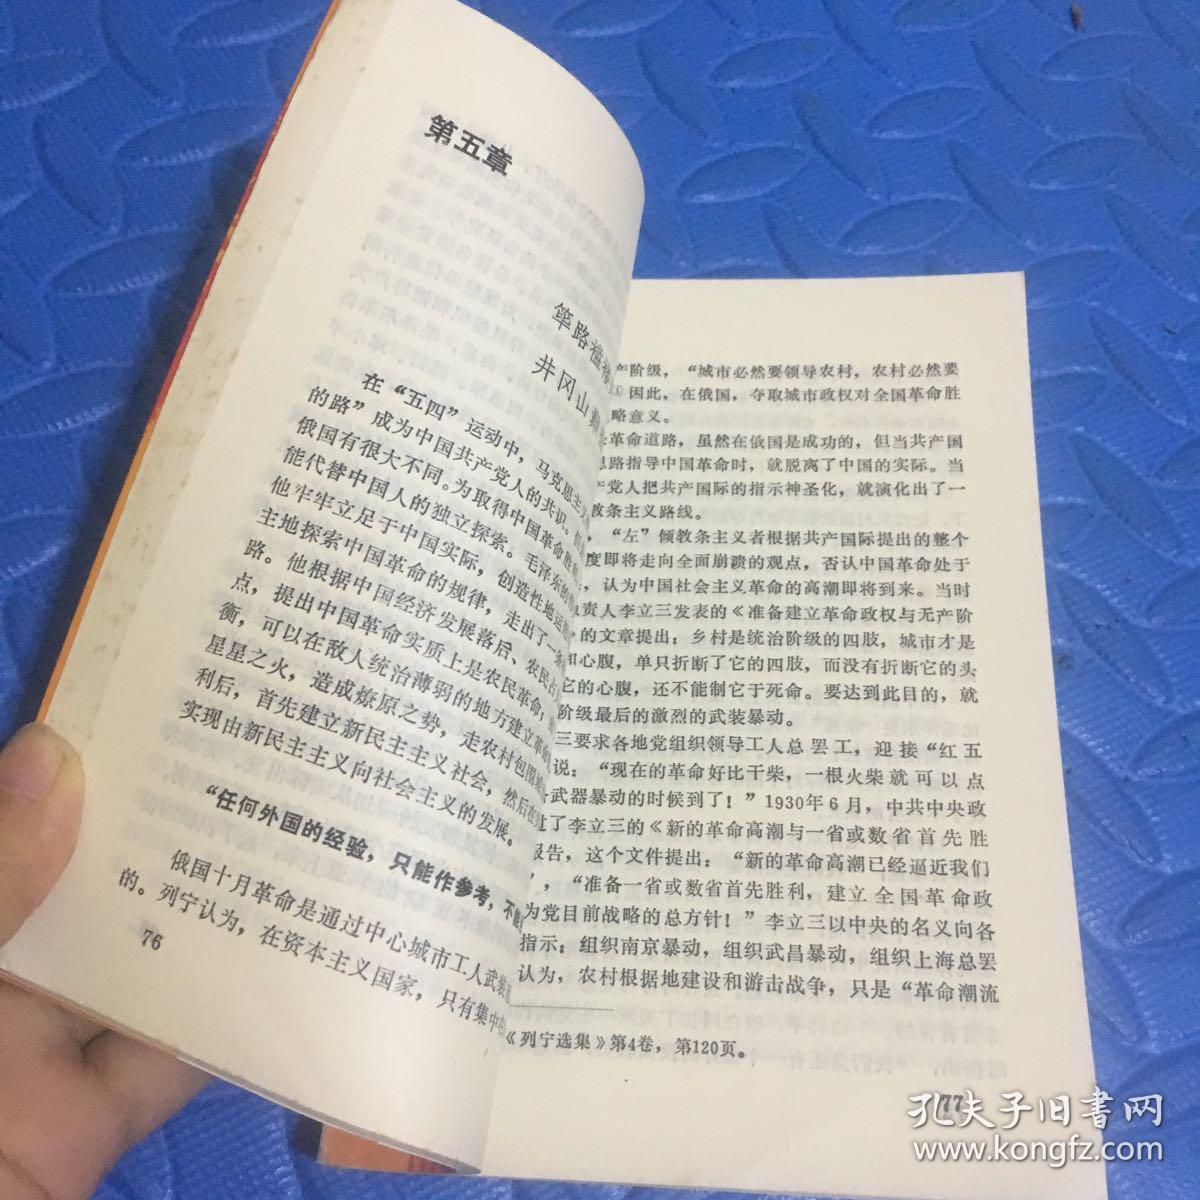 第五章
筚路褴
井冈山
在“五四”运动中，马克思主义
的路”成为中国共产党人的共识。
俄国有很大不同。为取得中国革命胜利
能代替中国人的独立探索。毛泽东的
他牢牢立足于中国实际，创造性地运
主地探索中国革命的规律，走出了一条
路。他根据中国经济发展落后、农民占
点，提出中国革命实质上是农民革命；
衡，可以在敌人统治薄弱的地方建立革命
星星之火，造成燎原之势，走农村包围城
利后，首先建立新民主主义社会，然后在
实现由新民主主义向社会主义的发展。
“任何外国的经验，只能作参考，不能
俄国十月革命是通过中心城市工人武装
的。列宁认为，在资本主义国家，只有集中
76
产阶级，“城市必然要领导农村，农村必然要
①因此，在俄国，夺取城市政权对全国革命胜
略意义。
革命道路，虽然在俄国是成功的，但当共产国
思路指导中国革命时，就脱离了中国的实际。当
产党人把共产国际的指示神圣化，就演化出了一
教条主义路线。
，“左”倾教条主义者根据共产国际提出的整个
度即将走向全面崩溃的观点，否认中国革命处于
，认为中国社会主义革命的高潮即将到来。当时
负责人李立三发表的《准备建立革命政权与无产阶
的文章提出：乡村是统治阶级的四肢，城市才是
和心腹，单只折断了它的四肢，而没有折断它的头
它的心腹，还不能制它于死命。要达到此目的，就
阶级最后的激烈的武装暴动。
三要求各地党组织领导工人总罢工，迎接“红五
说：“现在的革命好比干柴，一根火柴就可以点
武器暴动的时候到了！”1930年6月，中共中央政
过了李立三的《新的革命高潮与一省或数省首先胜
报告，这个文件提出：“新的革命高潮已经逼近我们
，“准备一省或数省首先胜利，建立全国革命政
为党目前战略的总方针！”李立三以中央的名义向各
指示：组织南京暴动，组织武昌暴动，组织上海总罢
认为，农村根据地建设和游击战争，只是“革命潮流
《列宁选集》第4卷，第120页。
77
孔夫子旧书网
www.kongfz.com